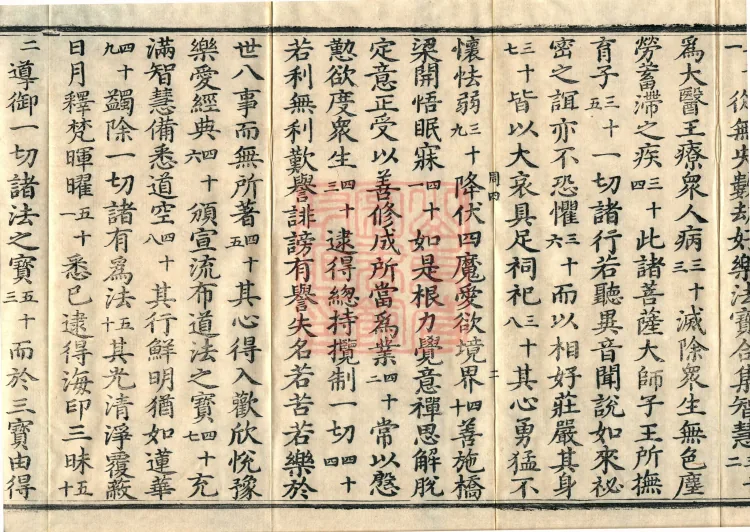 從無央數劫好樂法寶合集智慧三十二
爲大醫王療衆人病三十三滅除衆生無色塵
勞蓄滯之疾三十四此諸菩薩大師子王所撫
育子三十五一切諸行若聽異音聞說如來祕
密之誼亦不恐懼三十六而以相好莊嚴其身
三十七皆以大哀具足祠祀三十八其心勇猛不
周四 二
懷怯弱三十九降伏四魔愛欲境界四十善施橋
梁開悟眠寐四十一如是根力覺意禪思解脫
定意正受以善修成所當爲業四十二常以慇
懃欲度衆生四十三逮得總持攬制一切四十四
若利無利歎譽誹謗有譽失名若苦若樂於
世八事而無所著四十五其心得入歡欣悅豫
樂愛經典四十六頒宣流布道法之寶四十七充
滿智慧備悉道空四十八其行鮮明猶如蓮華
四十九蠲除一切諸有爲法五十其光清淨覆蔽
日月釋梵暉曜五十一悉已逮得海印三昧五十
二導御一切諸法之寶五十三而於三寶由得